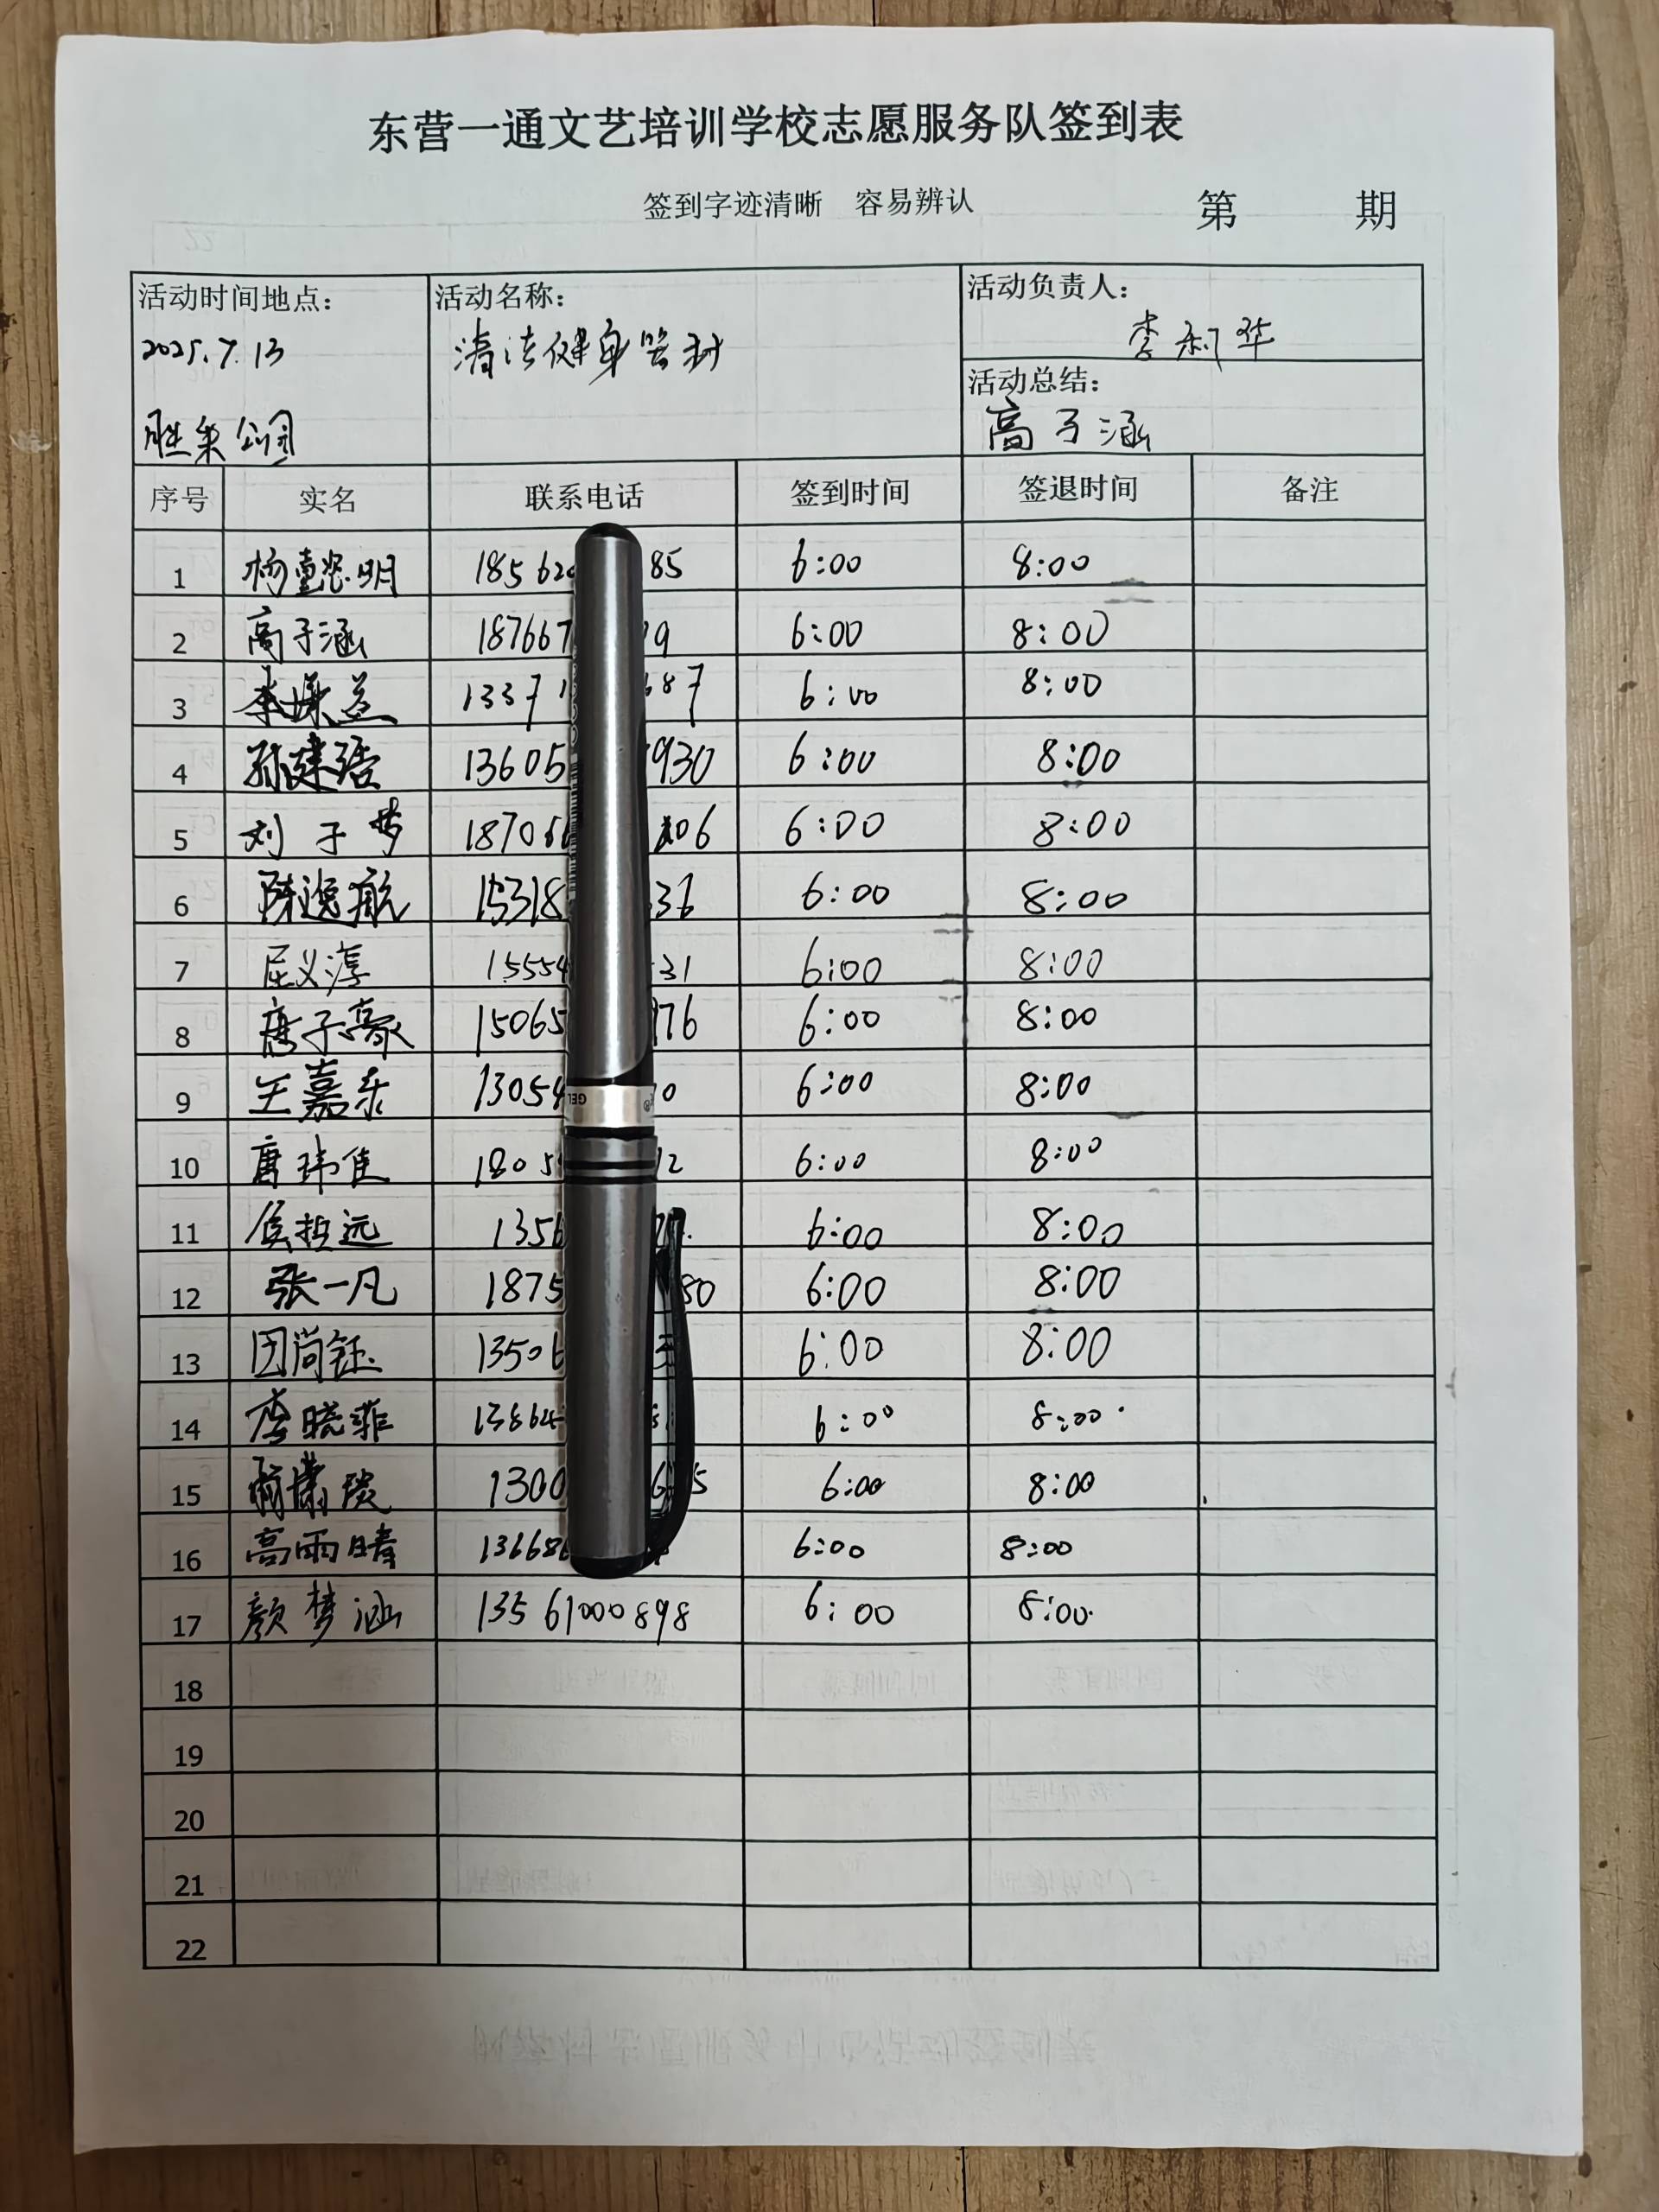 东营一通文艺培训学校志愿服务队签到表
签到字迹清晰 容易辨认 第 期
活动时间地点： 活动名称： 活动负责人：
2025.7.13 清洁健身器材 李利华
活动总结：
胜泉公园 高子涵
序号 实名 联系电话 签到时间 签退时间 备注
1 杨 明 18562 85 6:00 8:00
2 高子涵 187667 9 6:00 8:00
3 李 1337 87 6:00 8:00
4 孙建 13605 930 6:00 8:00
5 刘子梦 1870 06 6:00 8:00
6 陈逸航 15318 36 6:00 8:00
7 屈义淳 15554 31 6:00 8:00
8 唐子豪 15065 76 6:00 8:00
9 王嘉乐 13054 0 6:00 8:00
10 唐玮佳 1805 2 6:00 8:00
11 侯哲远 1356 6:00 8:00
12 张一凡 1875 80 6:00 8:00
13 田尚钰 13506 6:00 8:00
14 李晓菲 13864 6:00 8:00
15 1300 5 6:00 8:00
16 高雨晴 13668 6:00 8:00
17 颜梦涵 13561000898 6:00 8:00
18
19
20
21
22